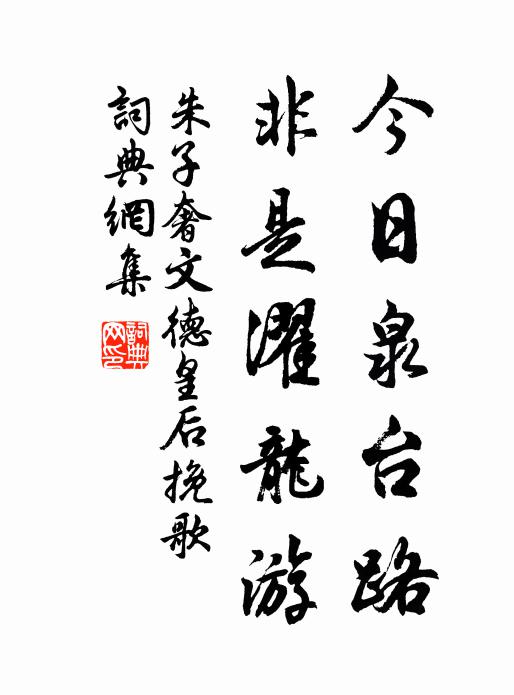 今日泉台路
非是濯龍游
朱子奢文德皇后挽歌
詞典網集
詞典網印